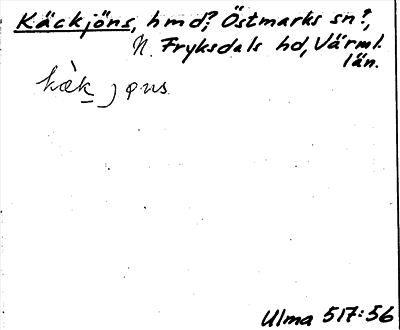 Käckjöns, hmd?, Östmarks sn?,
N. Fryksdals hd, Värml.
län.
Ulma 517:56